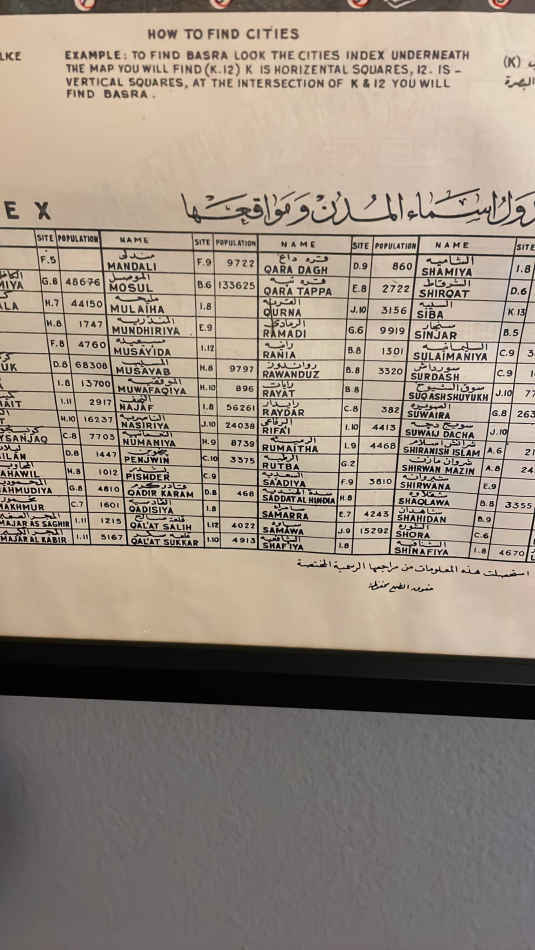 HOW TO FIND CITIES
EXAMPLE: TO FIND BASRA LOOK THE CITIES INDEX UNDERNEATH
THE MAP YOU WILL FIND (K.12) K IS HORIZENTAL SQUARES, 12. IS –
VERTICAL SQUARES, AT THE INTERSECTION OF K & 12 YOU WILL
FIND BASRA.
LKE
(K)
البصرة
EX
جدول اسماء المدن ومواقعها
SITE POPULATION NAME SITE POPULATION NAME SITE POPULATION NAME SITE
F.5 مندلي MANDALI F.9 9722 قره داغ QARA DAGH D.9 860 الشاميه SHAMIYA I.8
MIYA G.8 48676 الموصل MOSUL B.6 133625 قره تپه QARA TAPPA E.8 2722 الشرقاط SHIRQAT D.6
ALA H.7 44150 مليحه MULAIHA I.8 القرنه QURNA J.10 3156 السيبه SIBA K.13
H.8 1747 المنذريه MUNDHIRIYA E.9 الرمادي RAMADI G.6 9919 سنجار SINJAR B.5
F.8 4760 مسيعيده MUSAYIDA I.12 رانيه RANIA B.8 1301 السليمانيه SULAIMANIYA C.9
UK D.8 68308 المسيب MUSAYAB H.8 9797 رواندوز RAWANDUZ B.8 3320 سورداش SURDASH C.9
I.8 13700 الموفقيه MUWAFAQIYA H.10 896 رايات RAYAT B.8 سوق الشيوخ SUQASHSHUYUKH J.10
AIT I.11 2917 النجف NAJAF I.8 56261 رايدار RAYDAR C.8 382 الصويره SUWAIRA G.8 263
H.10 16237 الناصريه NASIRIYA J.10 24038 الرفاعي RIFAI I.10 4413 سويج دجه SUWAIJ DACHA J.10
YSANJAQ C.8 7703 النعمانيه NUMANIYA H.9 8739 الرميثه RUMAITHA I.9 4468 شرانش اسلام SHIRANISH ISLAM A.6
ILAN D.8 1447 پنجوين PENJWIN C.10 3375 الرطبه RUTBA G.2 شروان مازن SHIRWAN MAZIN A.8
AHAWIL H.8 1012 پشدر PISHDER C.9 السعديه SAADIYA F.9 3810 شيروانه SHIRWANA E.9
MAHMUDIYA G.8 4810 قادر كرم QADIR KARAM D.8 468 سدة الهنديه SADDAT AL HINDIA H.8 شقلاوه SHAQLAWA B.8 3355
MAKHMUR C.7 1601 القادسيه QADISIYA I.8 سامراء SAMARRA E.7 4243 شاهيدان SHAHIDAN B.9
MAJAR AS SAGHIR I.11 1215 قلعة صالح QAL'AT SALIH I.12 4022 السماوه SAMAWA J.9 15292 الشوره SHORA C.6
MAJAR AL KABIR I.11 5167 قلعة سكر QAL'AT SUKKAR I.10 4913 الشافعيه SHAF'IYA I.8 الشنافيه SHINAFIYA I.8 4670
استحصلت هذه المعلومات من مراجعها الرسمية المختصة
حقوق الطبع محفوظة